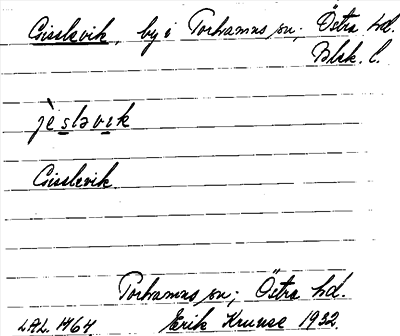 Gisslevik, by i Torhamns sn; Östra hd.
Blek. l.
jèsləvik
Gisslevik.
Torhamns sn; Östra hd.
Erik Kruuse 1932.